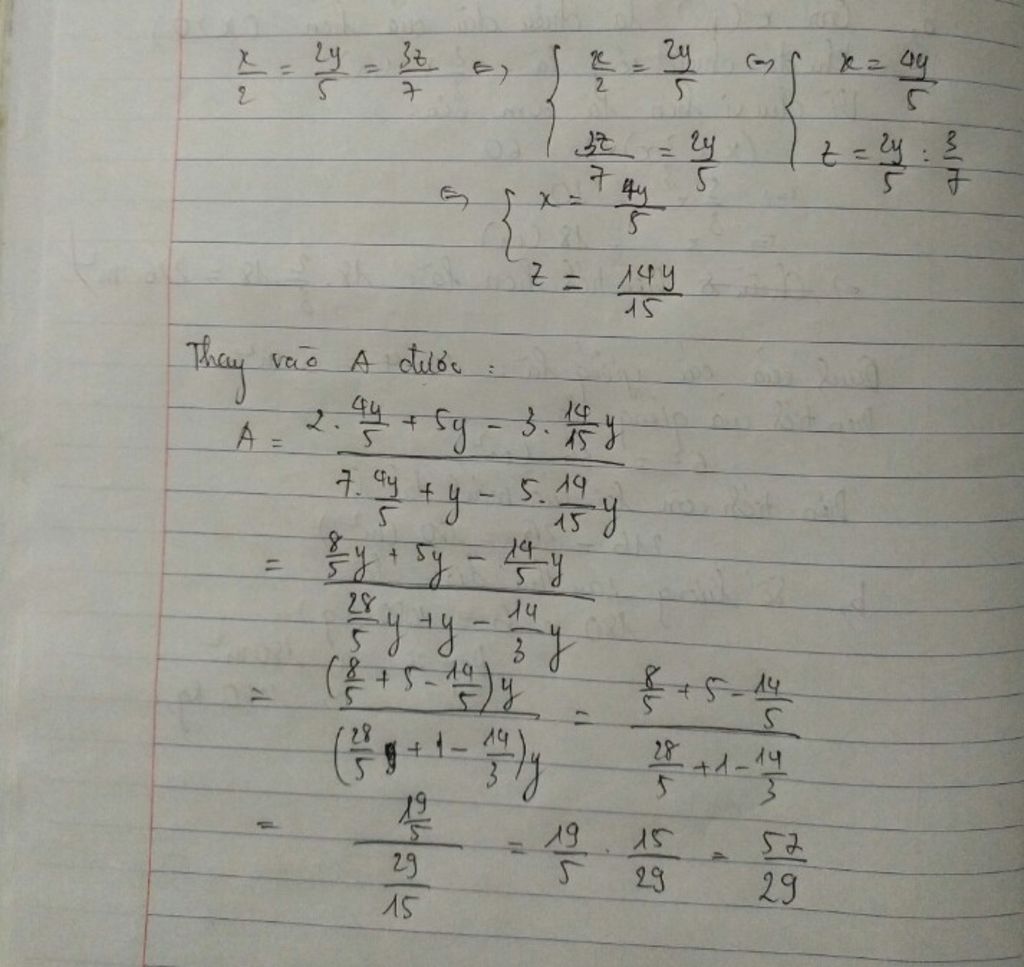 x/2 = 2y/5 = 3z/7 ⇔ { x/2 = 2y/5 ⇔ { x = 4y/5
3z/7 = 2y/5 z = 2y/5 : 3/7
⇔ { x = 4y/5
z = 14y/15
Thay vào A được :
A = (2. 4y/5 + 5y - 3. 14/15 y) / (7. 4y/5 + y - 5. 14/15 y)
= (8/5 y + 5y - 14/5 y) / (28/5 y + y - 14/3 y)
= ((8/5 + 5 - 14/5) y) / ((28/5 + 1 - 14/3) y) = (8/5 + 5 - 14/5) / (28/5 + 1 - 14/3)
= (19/5) / (29/15) = 19/5 . 15/29 = 57/29